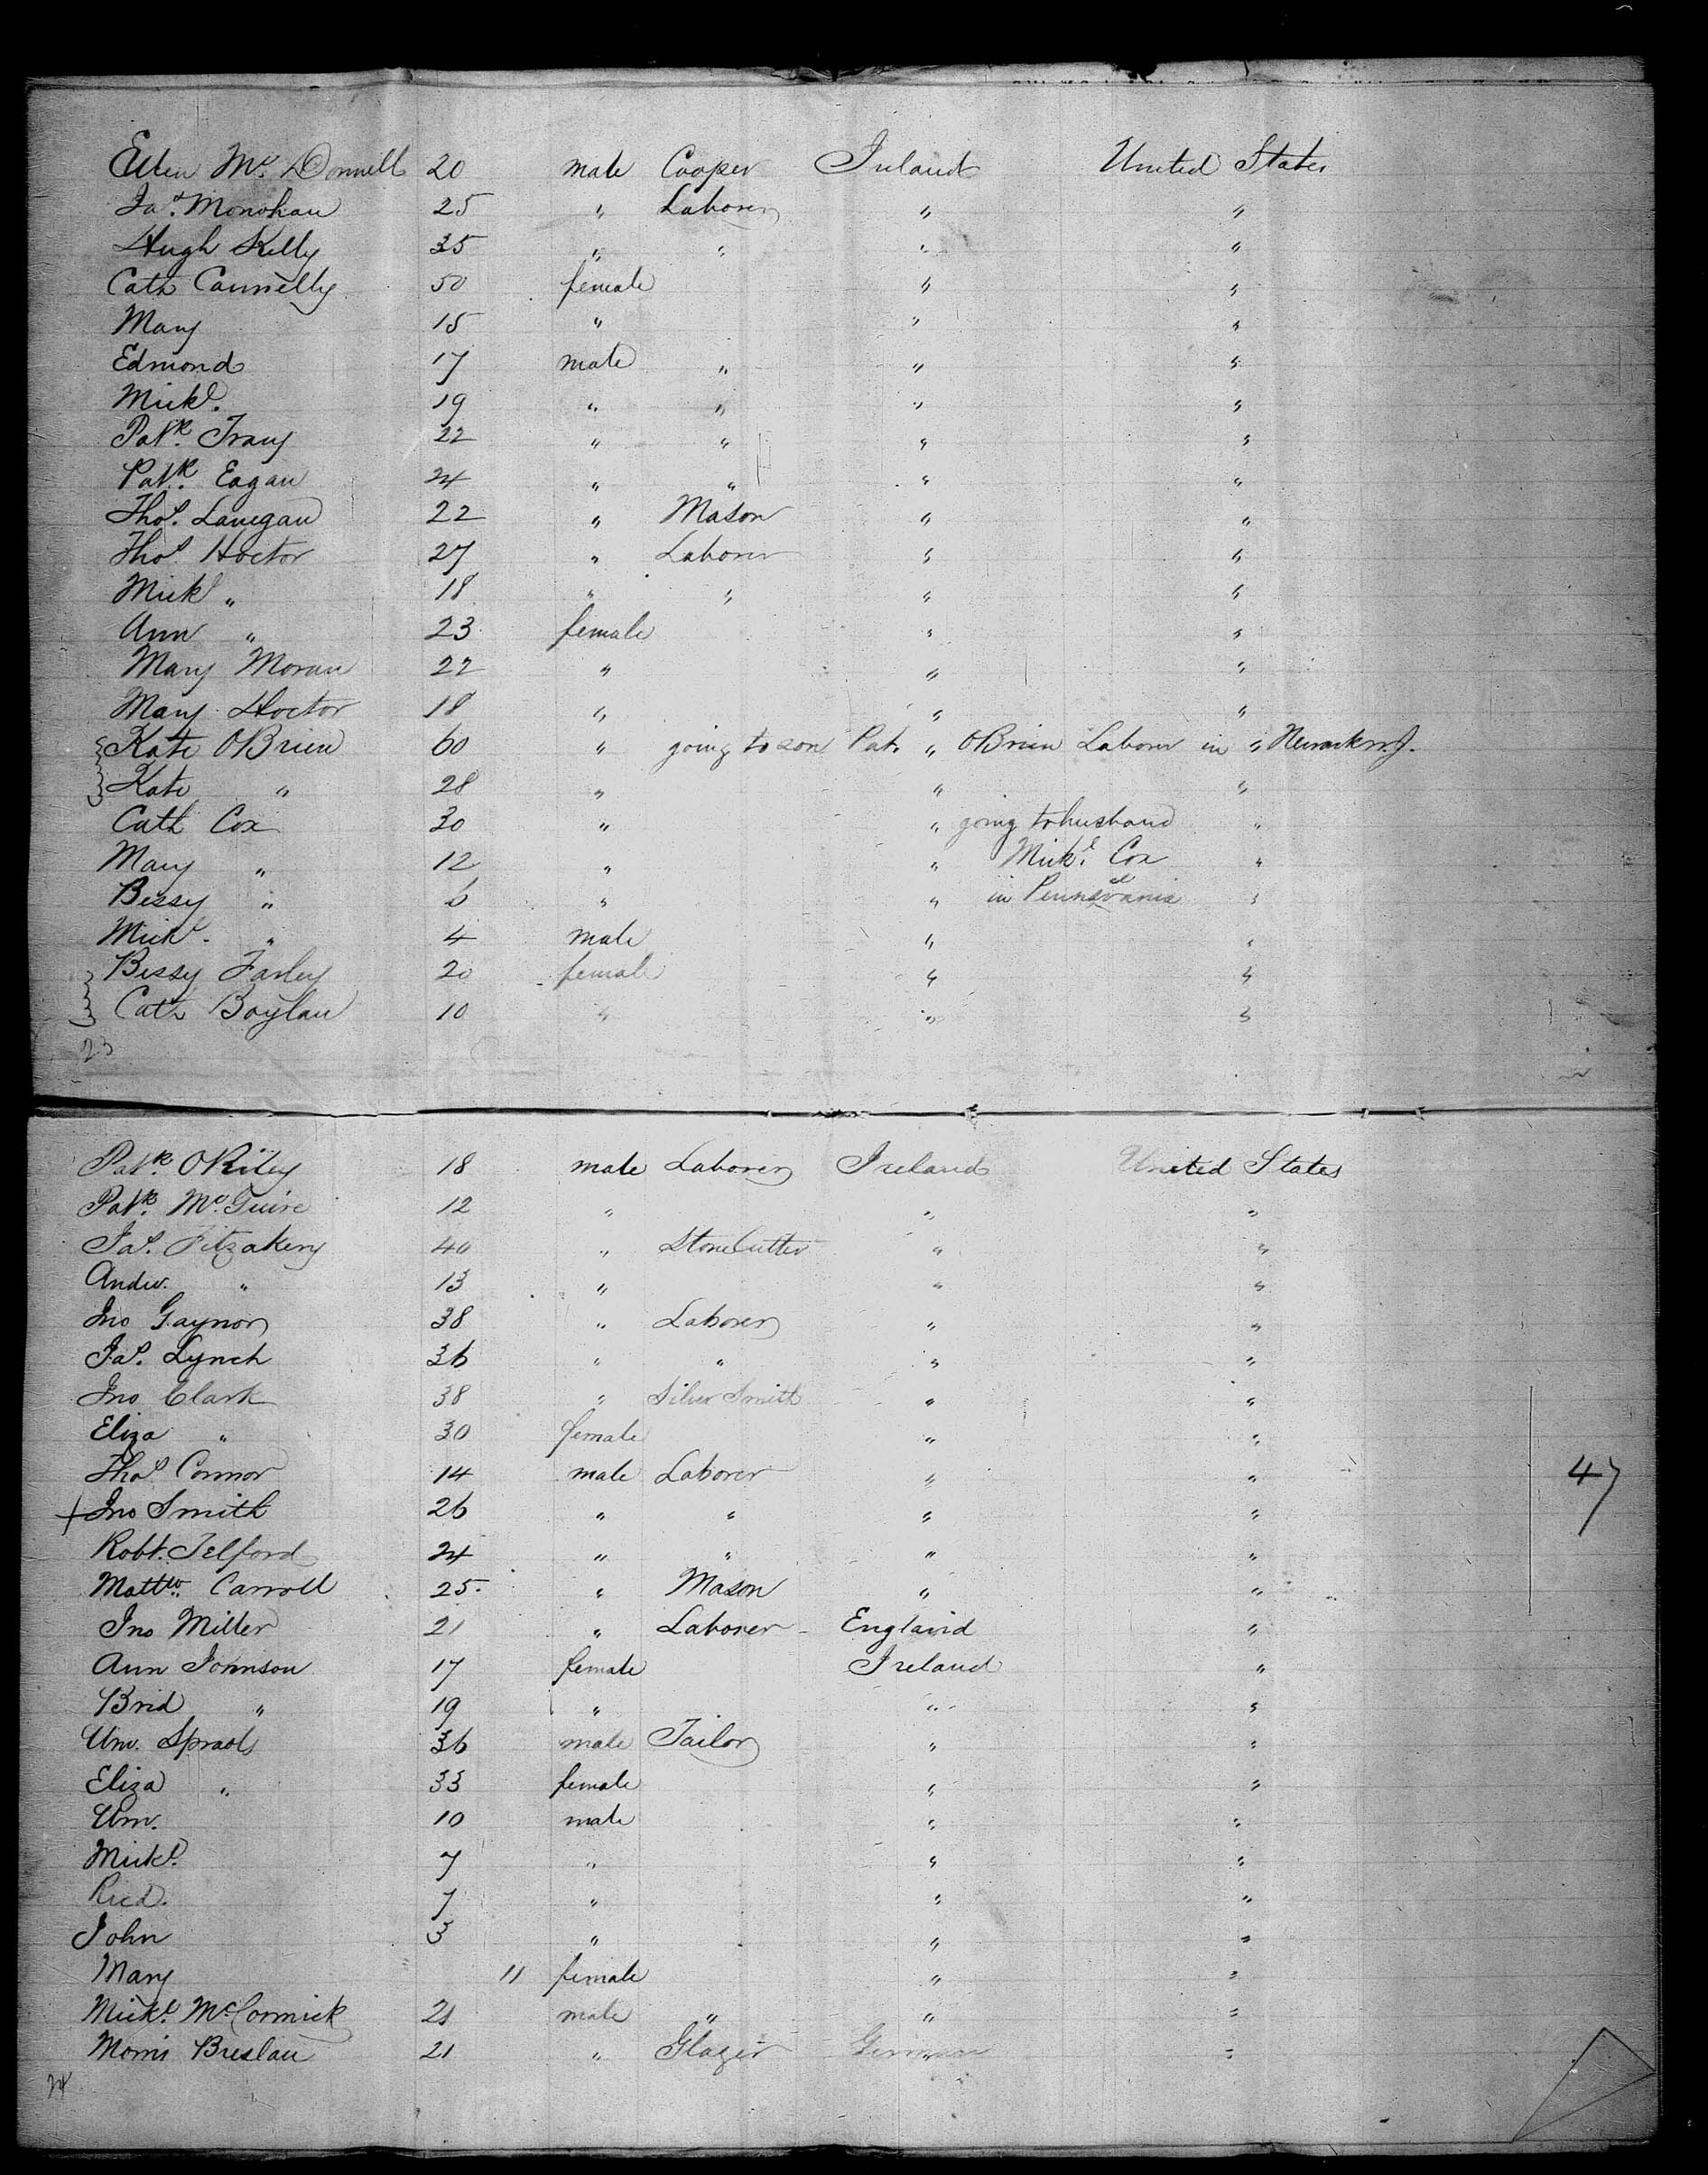 Ellen Mc Donnell 20 male Cooper Ireland United States
Jas. Monohan 25 " Laborer " "
Hugh Kelly 35 " " " "
Cath Connelly 50 female " "
Mary 15 " " "
Edmond 17 male " " "
Mickl. 19 " " " "
Patk. Tracy 22 " " " "
Patk. Eagan 24 " " " "
Thos. Lanegan 22 " Mason " "
Thos Hoctor 27 " Laborer " "
Mickl " 18 " " " "
Ann " 23 female " "
Mary Moran 22 " " "
Mary Hoctor 18 " " "
Kate OBrien 60 " going to son Pat. " OBrien Laborer in " Newark N.J.
Kate " 28 " " "
Cath Cox 30 " " going to husband "
Mary " 12 " " Mickl. Cox "
Bessy " 6 " " in Pennsylvania "
Mickl. " 4 male " "
Bessy Farley 20 female " "
Cath Boylan 10 " " "
23
Patk. ORiley 18 male Laborer Ireland United States
Patk. Mc Guire 12 " " "
Jas. Fitzakery 40 " StoneCutter " "
Andw. " 13 " " "
Jno Gaynor 38 " Laborer " "
Jas. Lynch 36 " " " "
Jno Clark 38 " Silver Smith " "
Eliza " 30 female " "
Thos Connor 14 male Laborer " "
47
+ Jno Smith 26 " " " "
Robt. Telford 24 " " " "
Mattw. Carroll 25. " Mason " "
Jno Miller 21 " Laborer England "
Ann Johnson 17 female Ireland "
Brid " 19 " " "
Wm. Spraols 36 male Tailor " "
Eliza " 33 female " "
Wm. 10 male " "
Mickl. 7 " " "
Ricd. 7 " " "
John 3 " " "
Mary 11 female " "
Mickl. McCormick 21 male " " "
Morris Breslau 21 " Glazier German "
24